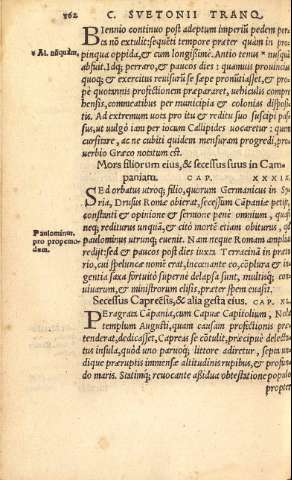 162 C. SVETONII TRANQ.
Biennio continuo post adeptum imperiũ pedem por-
tis nõ extulit: sequẽti tempore præter quàm in pro-
pinqua oppida, & cum longissime. Antio tenus * nusquã
* Al. nũquàm.
abfuit. Idq; perraro, & paucos dies: quamuis prouincias
quoq; & exercitus reuisurũ se sæpe pronũtiasset, & pro-
pè quotannis profectionem præpararet, vehiculis compre-
hensis, commeatibus per municipia & colonias disposi-
tis. Ad extremum uota pro itu & reditu suo suscipi pas-
sus, ut uulgò iam per iocum Callipides uocaretur: quem
cursitare, ac ne cubiti quidem mensuram progredi, pro-
uerbio Græco notatum est.
Mors filiorum eius, & secessus suus in Cam-
paniam. CAP. XXXIX.
Sed orbatus utroq; filio, quorum Germanicus in Sy-
ria, Drusus Romæ obierat, secessum Cãpaniæ petijt,
constanti & opinione & sermone penè omnium, quasi
neq; rediturus unquã, & citò mortẽ etiam obiturus, quod
paulominus utrunq; euenit. Nam neque Romam amplius
Paulominus,
pro propemo-
dum.
redijt: sed & paucos pòst dies iuxta Terracinã in præto-
rio, cui speluncæ nomẽ erat, incœnante eo, cõplura & in-
gentia saxa fortuitò supernè delapsa sunt, multisq; con-
uiuarum, & ministrorum elisis, præter spem euasit.
Secessus Capreësis, & alia gesta eius. CAP. XL.
Peragrata Cãpania, cum Capuæ Capitolium, Nolæ
templum Augusti, quam causam profectionis præ-
tenderat, dedicasset, Capreas se cõtulit, præcipuè delecta-
tus insula, quòd uno paruoq; littore adiretur, septa undi-
dique præruptis immensæ altitudinis rupibus, & profun-
do maris. Statimq; reuocante assidua obtestatione populo,
propter